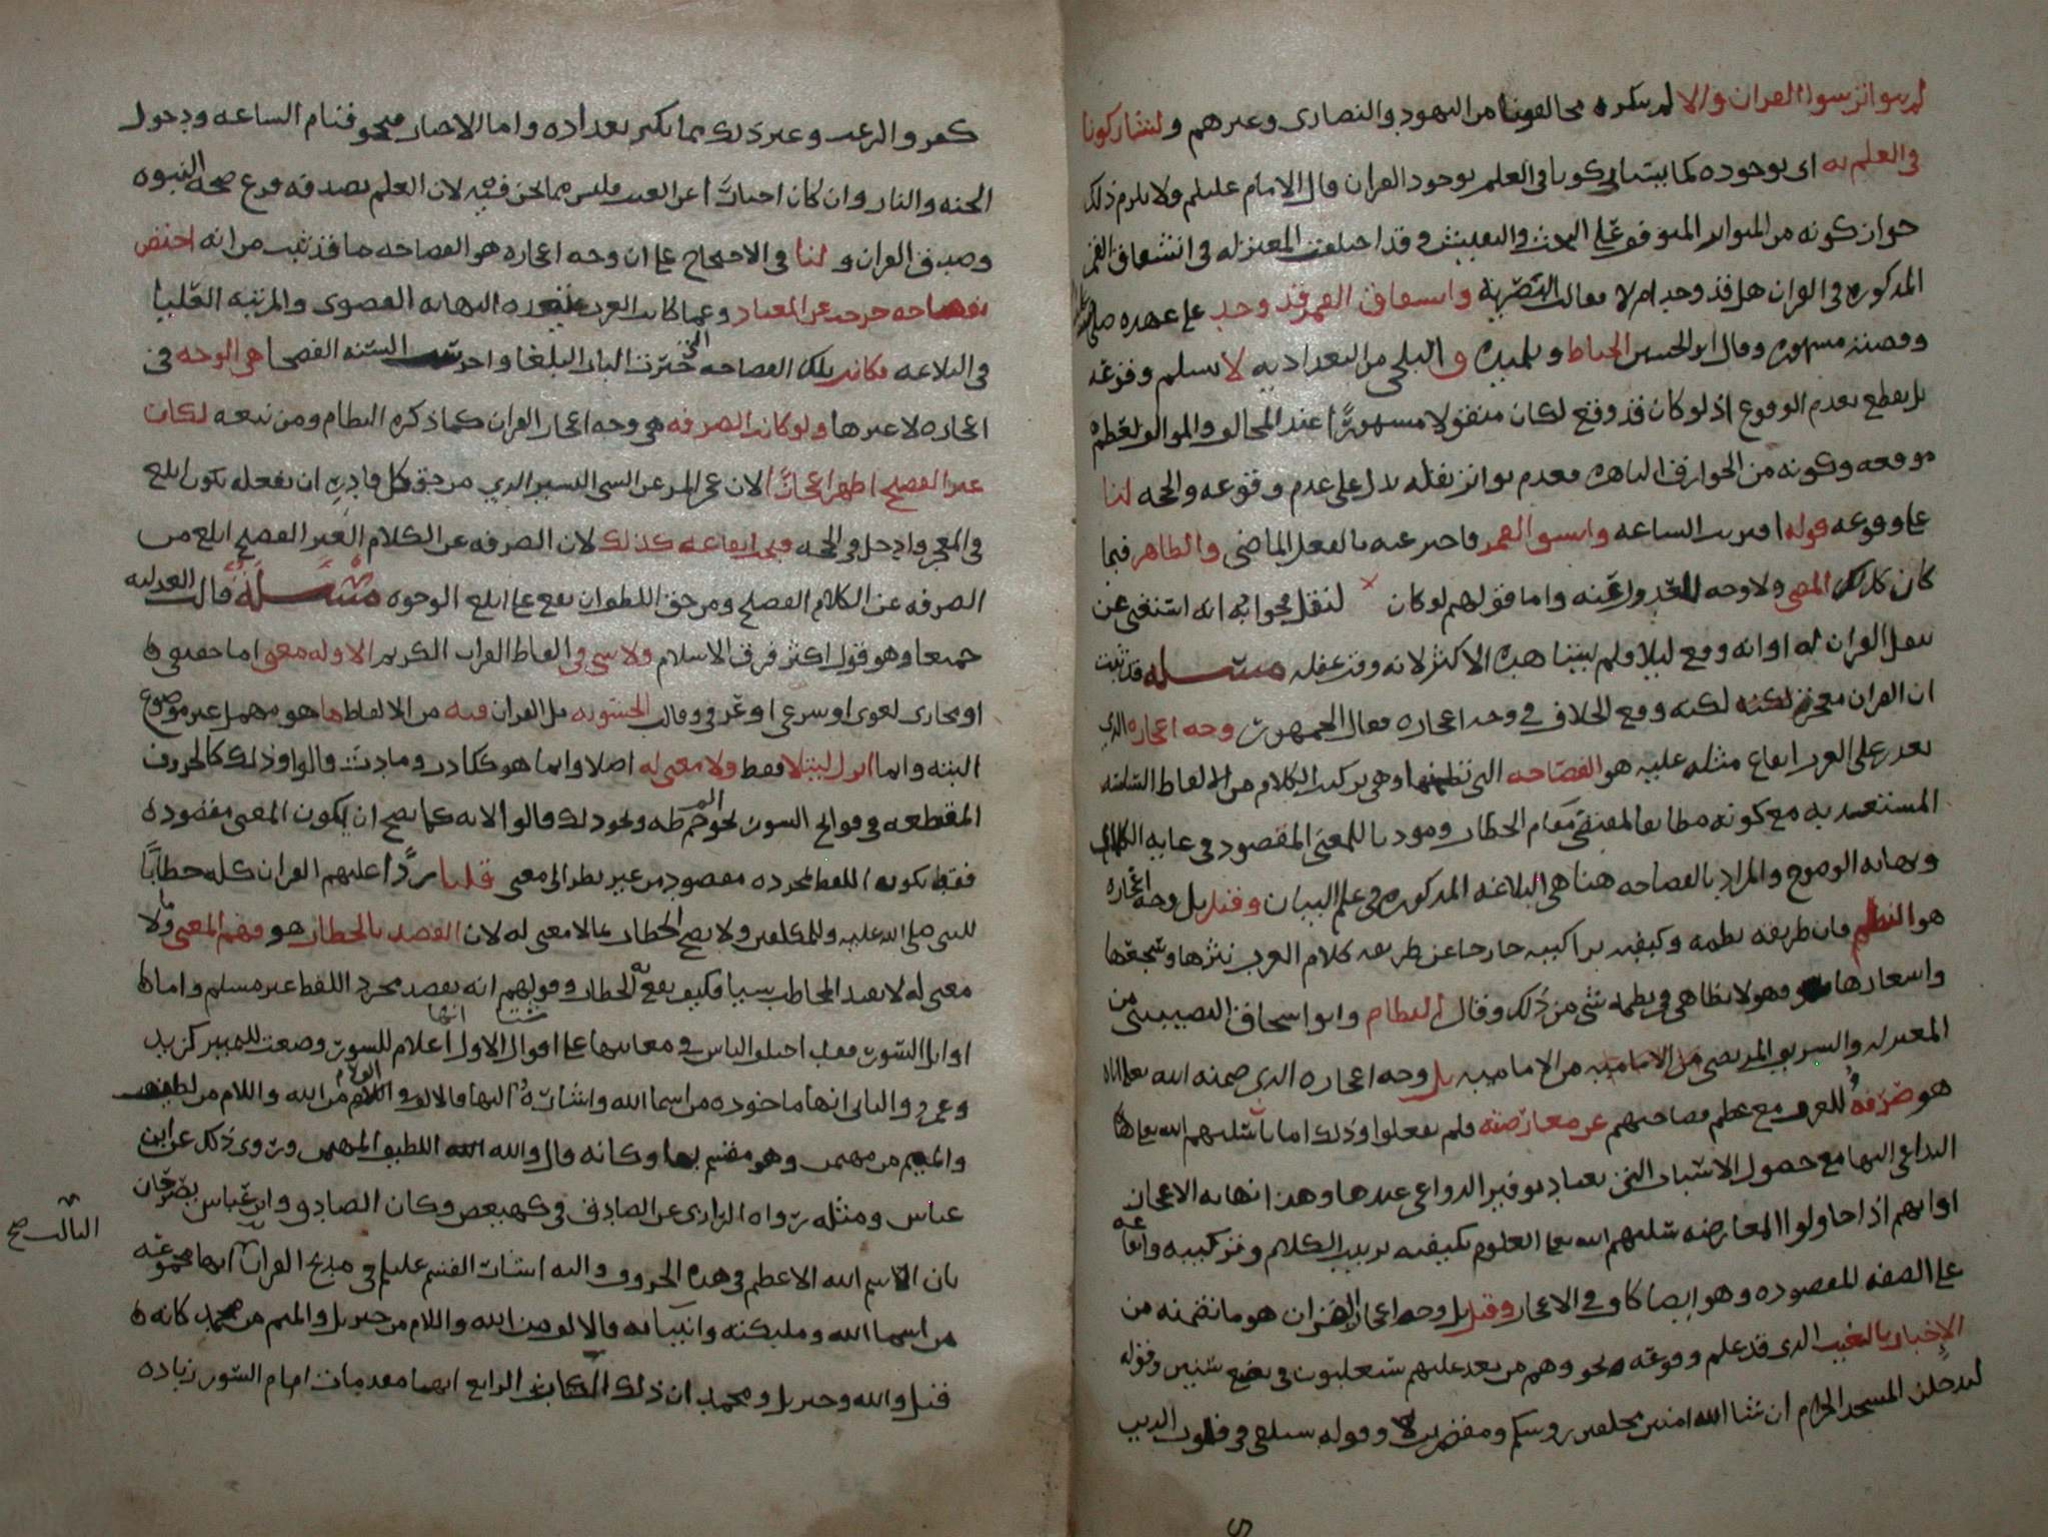 لم يتواتر سوا القران والا لم ينكره مخالفونا من اليهود والنصارى وغيرهم ولشاركونا
في العلم به اى بوجوده كما يتشاركونا في العلم بوجود القران قال الامام عليلم ولا يلزم ذلك
جواز كونه من المتواتر المتوقف على البحث والتفتيش وقد اختلفت المعتزله في انشقاق القمر
المذكوره في القران هل قد وجد ام لا فقالت البصرية وانشقاق القمر قد وجد على عهده صلى
وقصته مشهوره وقال ابو الحسين الخياط وتلميذه والبلخى من البغداديه لا نسلم وقوعه
بل يقطع بعدم الوقوع اذ لو كان قد وقع لكان منقولا مشهورًا عند المخالف والموالف لعظم
موقعه وكونه من الخوارق الباهره فعدم تواتر نقله يدل على عدم وقوعه والحجه لنا
على وقوعه قوله اقتربت الساعه وانشق القمر فاخبر عنه بالفعل الماضي والظاهر فيما
كان كذلك المضى ولا وجه للعدول عنه واما قولهم لو كان لنقل فجوابه انه استغنى عن
نقل القران له او انه وقع ليلا فلم يتنبا هذه الاكثر لانه وقت غفله مسئله قد ثبت
ان القران معجز لكنه وقع الخلاف في وجه اعجازه فقال الجمهور وجه اعجازه الذي
تعذر على العرب ايقاع مثله عليه هو الفصاحه التي وهي تركيب الكلام من الالفاظ السلسه
المستعذبه مع كونه مطابقا لمقتضى مقام الخطاب ومودبا للمعنى المقصود في غايه الكمال
ونهايه الوضوح والمراد بالفصاحه هنا هي البلاغه المذكوره في علم البيان وقيل بل وجه اعجازه
هو النظم فان طريقه نظمه وكيفيه تراكيبه خارجا عن طريقه كلام العرب نثرها وسجعها
واشعارها فهو لا يظاهي في نظمه شي من ذلك وقال النظام وابو اسحاق النصيبيني من
المعتزله والشريف المرتضى من الاماميه من الاماميه بل وجه اعجازه الذي ضمنه الله تعالى اياه
هو صَرْفهُ للعرب مع عظم فصاحتهم عن معارضته فلم يفعلوا وذلك اما باسلبهم الله تعالى
الداعي اليها مع حصول الاسباب التي يعتاد توفير الدواعي عندها وهذا نهايه الاعجاز
او انهم اذا حاولوا المعارضه سلبهم الله تعالى العلوم بكيفيه ترتيب الكلام وتركيبه وايقاعه
على الصفه المقصوده وهو ايضا كاف في الاعجاز وقيل بل وجه اعجاز القران هو ما تضمنه من
الإخبار بالغيب الذي قد علم وقوعه نحو وهم من بعد غلبهم سيغلبون في بضع سنين وقوله
لتدخلن المسجد الحرام ان شا الله امنين محلقين روسكم ومقصرين وقوله سنلقى في قلوب الذين
كفروا الرعب وغير ذلك مما يكثر تعداده واما الاخبار فنحو قيام الساعه ودخول
الجنه والنار وان كان اخبارًا عن الغيب فليس مما نحن فيه لان العلم بصدقه فرع صحه النبوه
وصدق القران ولنا في الاحتجاج على ان وجه اعجازه هو الفصاحه ما قد ثبت من انه اختص
بفصاحه خرجت عن المعتاد وعما كانت العرب النهايه القصوى والمرتبه العليا
في البلاغه فكانت تلك الفصاحه التي حيّرت الباب البلغا واخرست السنه الفصحا هي الوجه في
اعجازه لا غيرها ولو كانت الصرفه هي وجه اعجاز القران كما ذكره النظام ومن تبعه لكان
غير الفصيح اظهر اعجازًا لان عجز المرء عن الشي اليسير الذي من حق كل قادرٍ ان يفعله يكون ابلغ
في المعجز وادخل في الحجه فيجب ايقاعه كذلك لان الصرفه عن الكلام الغير الفصيح ابلغ من
الصرفه عن الكلام الفصيح ومن حق اللطف ان يقع على ابلغ الوجوه مسئلة قالت العدليه
جميعا وهو قول اكثر فرق الاسلام ولا شي في الفاظ القران الكريم الا وله معنى اما حقيقي
او مجازى لغوى او شرعى او عرفي وقالت الحشويه بل القران فيه من الالفاظ ما هو مهمل غير موضوع
البته وانما انزل ليتلا فقط ولا معنى له اصلا وانما هو ككادث ومادث قالوا وذلك كالحروف
المقطعه في فواتح السور نحو الم حم طه ونحو ذلك قالوا لانه كما يصح ان يكون المعنى مقصوده
فقط تكون اللفظ لمجرده مقصود من غير نظر الى معنى قلنا ردًّا عليهم القران كله خطابًا
للنبى صلى الله عليه وللمكلفين ولا يصح الخطاب بما لا معنى له لان القصد بالخطاب هو فهم المعنى وما لا
معنى له لا يفيد المخاطب شيئا فكيف يقع به الخطاب وقولهم انه يقصد مجرد اللفظ غير مسلم واما
اوايل السور فقد اختلف الناس في معانيها على اقوال الاول انها اعلام للسور وضعت للتمييز كزيد
وعمرو والثاني انها ماخوذه من اسما الله واشارهٌ اليها فالالف واللام من الله واللام من لطيف
والميم من مهيمن وهو مقسم بها وكانه قال والله اللطيف المهيمن وروى ذلك عن ابن
عباس ومثله رواه الرازى عن الصادق في كهيعص وكان الصادق وابن عباس يصرحان
بان الاسم الله الاعظم في هذه الحروف واليه اشار القسم عليلم في مديح القران الثالث صح انها مجموعه
من اسما الله ومليكته وانبيائه فالالف من الله واللام من جبريل والميم من محمد كانه
قيل والله وجبريل ومحمد ان ذلك الكتاب الرابع انها مقدمات امام السور زياده